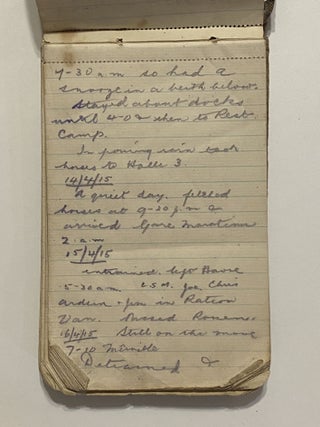 7-30 a.m so had a
snooze in a berth below.
Stayed about docks
until 4-0 & then to Rest-
Camp.
In pouring rain took
horses to Halle 3.
14/4/15
A quiet day. fetched
horses at 9-30 p.m &
arrived Gare Maratime
2. a.m
15/4/15
entrained. left Havre
5-30 a.m. Chris
in Ration
Van. Passed Rouen.
16/4/15 Still on the move
7-20
Detrained &